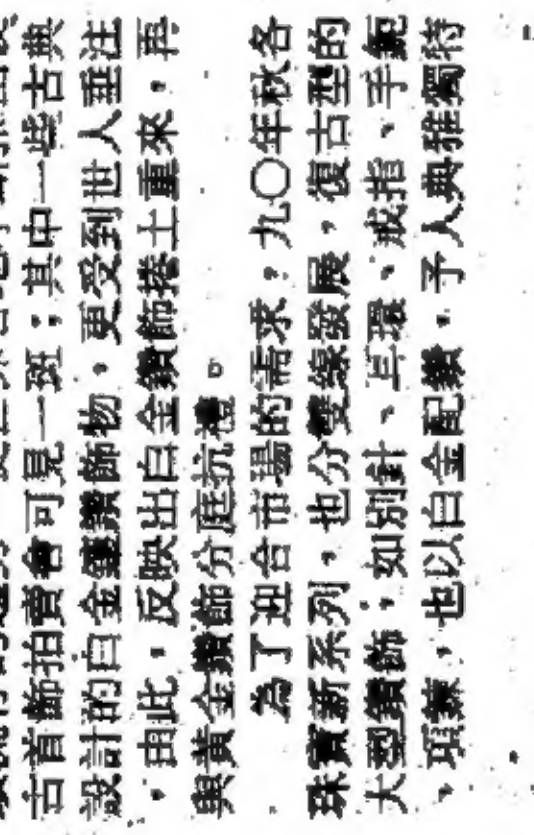 古首飾拍賣會可見一斑；其中一些古典
設計的白金鑲鑽飾物，更受到世人垂注
。由此，反映出白金鑽飾捲土重來，再
與黃金鑽飾分庭抗禮。
為了迎合市場的需求，九〇年秋各
珠寶新系列，也分雙線發展，復古型的
大型鑽飾，如別針、耳環、戒指、手鈪
、項鍊，也以白金配鑽，予人典雅獨特